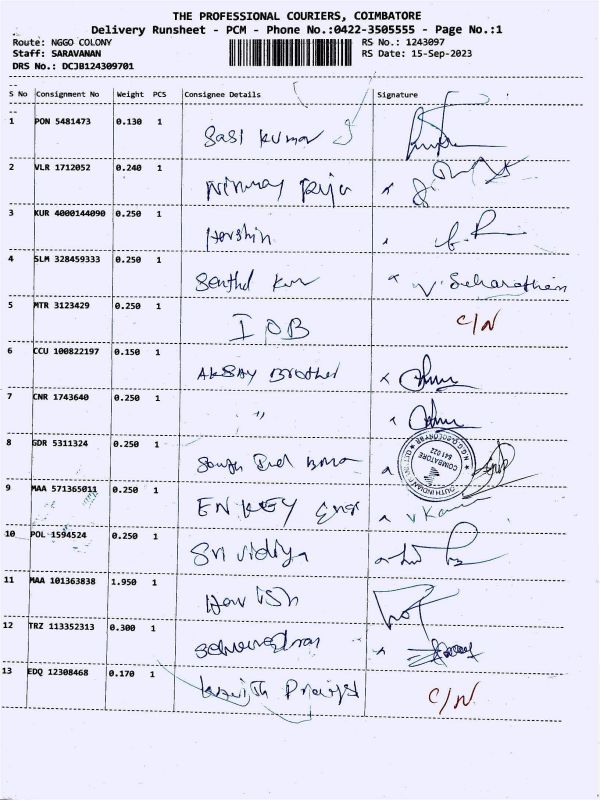 THE PROFESSIONAL COURIERS, COIMBATORE
Delivery Runsheet - PCM - Phone No.:0422-3505555 - Page No.:1
Route: NGGO COLONY RS No.: 1243097
Staff: SARAVANAN RS Date: 15-Sep-2023
DRS No.: DCJB124309701
S No Consignment No Weight PCS Consignee Details Signature
1 PON 5481473 0.130 1 Sasi Kumar
2 VLR 1712052 0.240 1
3 KUR 4000144090 0.250 1 Harshin
4 SLM 328459333 0.250 1 Senthil Kum
5 MTR 3123429 0.250 1 IOB C/N
6 CCU 100822197 0.150 1 AKSAY Brother
7 CNR 1743640 0.250 1 "
8 GDR 5311324 0.250 1 South Ind
COIMBATORE
641 022
9 MAA 571365011 0.250 1 EN KEY
10 POL 1594524 0.250 1 Sri Vidiya
11 MAA 101363838 1.950 1 Harish
12 TRZ 113352313 0.300 1
13 EDQ 12308468 0.170 1 C/N